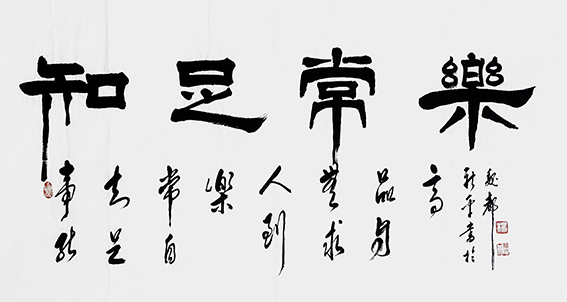 知足常樂
事能
知足
常自
樂
人到
無求
品自
高
平書於
魏都